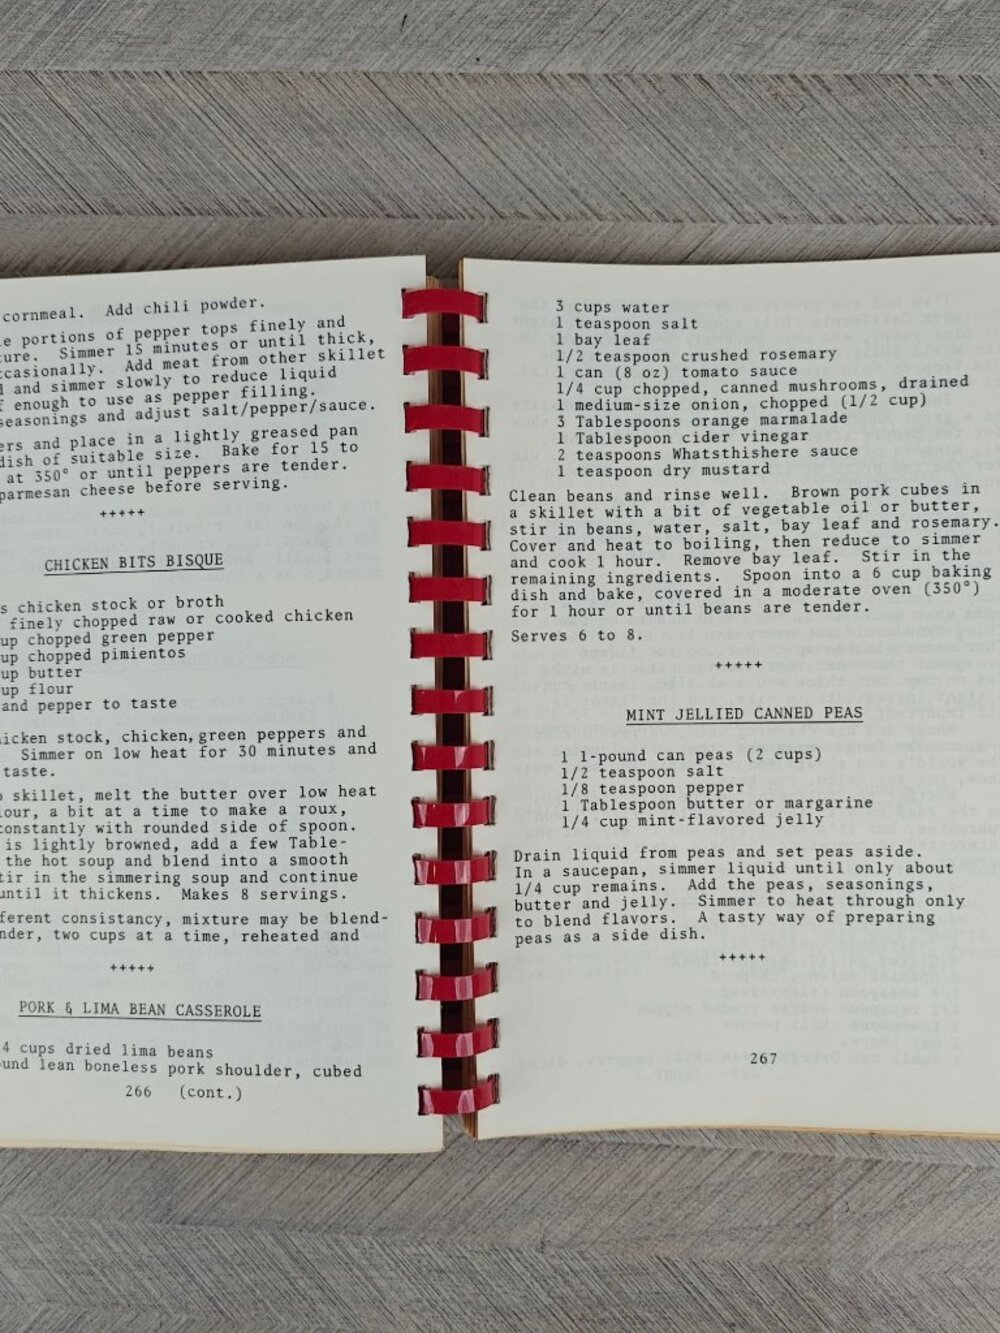 cornmeal. Add chili powder.
e portions of pepper tops finely and
ture. Simmer 15 minutes or until thick,
ccasionally. Add meat from other skillet
d and simmer slowly to reduce liquid
f enough to use as pepper filling.
seasonings and adjust salt/pepper/sauce.
ers and place in a lightly greased pan
dish of suitable size. Bake for 15 to
at 350° or until peppers are tender.
parmesan cheese before serving.
+++++
CHICKEN BITS BISQUE
s chicken stock or broth
finely chopped raw or cooked chicken
up chopped green pepper
up chopped pimientos
up butter
up flour
and pepper to taste
icken stock, chicken, green peppers and
Simmer on low heat for 30 minutes and
taste.
o skillet, melt the butter over low heat
lour, a bit at a time to make a roux,
constantly with rounded side of spoon.
is lightly browned, add a few Table-
the hot soup and blend into a smooth
tir in the simmering soup and continue
until it thickens. Makes 8 servings.
fferent consistancy, mixture may be blend-
nder, two cups at a time, reheated and
+++++
PORK & LIMA BEAN CASSEROLE
4 cups dried lima beans
ound lean boneless pork shoulder, cubed
266 (cont.)
3 cups water
1 teaspoon salt
1 bay leaf
1/2 teaspoon crushed rosemary
1 can (8 oz) tomato sauce
1/4 cup chopped, canned mushrooms, drained
1 medium-size onion, chopped (1/2 cup)
3 Tablespoons orange marmalade
1 Tablespoon cider vinegar
2 teaspoons Whatsthishere sauce
1 teaspoon dry mustard
Clean beans and rinse well. Brown pork cubes in
a skillet with a bit of vegetable oil or butter,
stir in beans, water, salt, bay leaf and rosemary.
Cover and heat to boiling, then reduce to simmer
and cook 1 hour. Remove bay leaf. Stir in the
remaining ingredients. Spoon into a 6 cup baking
dish and bake, covered in a moderate oven (350°)
for 1 hour or until beans are tender.
Serves 6 to 8.
+++++
MINT JELLIED CANNED PEAS
1 1-pound can peas (2 cups)
1/2 teaspoon salt
1/8 teaspoon pepper
1 Tablespoon butter or margarine
1/4 cup mint-flavored jelly
Drain liquid from peas and set peas aside.
In a saucepan, simmer liquid until only about
1/4 cup remains. Add the peas, seasonings,
butter and jelly. Simmer to heat through only
to blend flavors. A tasty way of preparing
peas as a side dish.
+++++
267